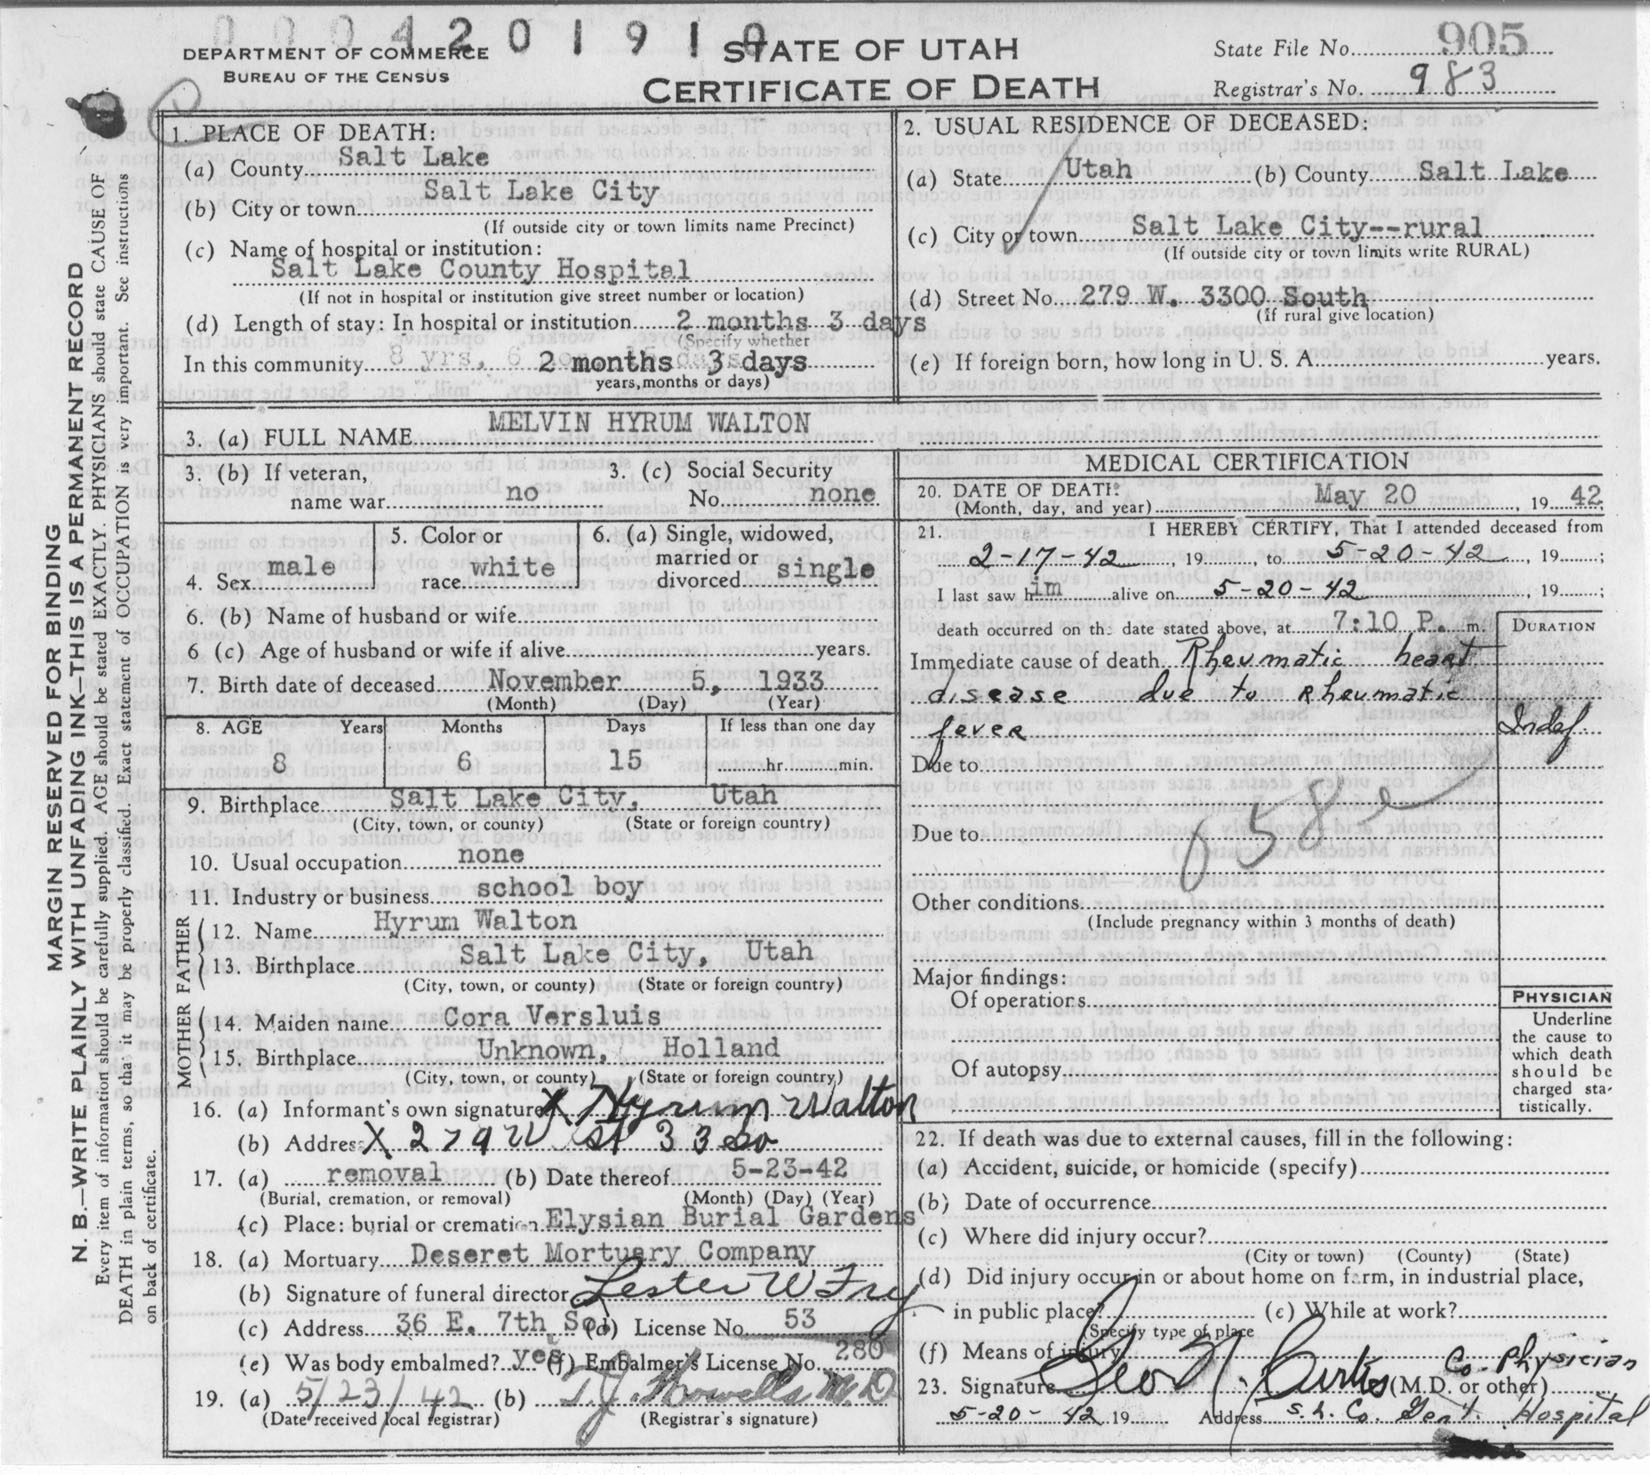 0004201910
DEPARTMENT OF COMMERCE
BUREAU OF THE CENSUS
STATE OF UTAH
CERTIFICATE OF DEATH
State File No. 905
Registrar's No. 983
MARGIN RESERVED FOR BINDING
N. B.—WRITE PLAINLY WITH UNFADING INK—THIS IS A PERMANENT RECORD
Every item of information should be carefully supplied. AGE should be stated EXACTLY. PHYSICIANS should state CAUSE OF
DEATH in plain terms, so that it may be properly classified. Exact statement of OCCUPATION is very important. See instructions
on back of certificate.
1. PLACE OF DEATH:
(a) County Salt Lake
(b) City or town Salt Lake City
(If outside city or town limits name Precinct)
(c) Name of hospital or institution:
Salt Lake County Hospital
(If not in hospital or institution give street number or location)
(d) Length of stay: In hospital or institution 2 months 3 days
(Specify whether
In this community 8 yrs, 6 2 months 3 days
years, months or days)
2. USUAL RESIDENCE OF DECEASED:
(a) State Utah (b) County Salt Lake
(c) City or town Salt Lake City--rural
(If outside city or town limits write RURAL)
(d) Street No. 279 W. 3300 South
(If rural give location)
(e) If foreign born, how long in U. S. A. years.
3. (a) FULL NAME MELVIN HYRUM WALTON
3. (b) If veteran,
name war no
3. (c) Social Security
No. none
4. Sex male
5. Color or
race white
6. (a) Single, widowed,
married or
divorced single
6. (b) Name of husband or wife
6 (c) Age of husband or wife if alive years.
7. Birth date of deceased November 5, 1933
(Month) (Day) (Year)
8. AGE Years Months Days If less than one day
8 6 15 hr. min.
9. Birthplace Salt Lake City, Utah
(City, town, or county) (State or foreign country)
10. Usual occupation none
11. Industry or business school boy
FATHER
12. Name Hyrum Walton
13. Birthplace Salt Lake City, Utah
(City, town, or county) (State or foreign country)
MOTHER
14. Maiden name Cora Versluis
15. Birthplace Unknown, Holland
(City, town, or county) (State or foreign country)
16. (a) Informant's own signature X Hyrum Walton
(b) Address X 279 W St 33 So
17. (a) removal (b) Date thereof 5-23-42
(Burial, cremation, or removal) (Month) (Day) (Year)
(c) Place: burial or cremation Elysian Burial Gardens
18. (a) Mortuary Deseret Mortuary Company
(b) Signature of funeral director Lester W Fry
(c) Address 36 E. 7th So. (d) License No. 53
(e) Was body embalmed? yes (f) Embalmer's License No. 280
19. (a) 5/23/42 (b) T.J. Howells M.D
(Date received local registrar) (Registrar's signature)
MEDICAL CERTIFICATION
20. DATE OF DEATH:
(Month, day, and year) May 20, 1942
21. I HEREBY CERTIFY, That I attended deceased from
2-17-42, 19, to 5-20-42, 19;
I last saw him alive on 5-20-42, 19;
death occurred on the date stated above, at 7:10 P. m.
DURATION
Immediate cause of death Rheumatic heart
disease due to Rheumatic
fever Indef.
Due to
Due to
Other conditions
(Include pregnancy within 3 months of death)
Major findings:
Of operations
Of autopsy
PHYSICIAN
Underline
the cause to
which death
should be
charged sta-
tistically.
22. If death was due to external causes, fill in the following:
(a) Accident, suicide, or homicide (specify)
(b) Date of occurrence
(c) Where did injury occur?
(City or town) (County) (State)
(d) Did injury occur in or about home on farm, in industrial place,
in public place? (e) While at work?
(Specify type of place
(f) Means of injury
23. Signature Geo N. Curtis Co. Physician
(M.D. or other)
5-20-42 19 Address S. L. Co. Gen'l. Hospital